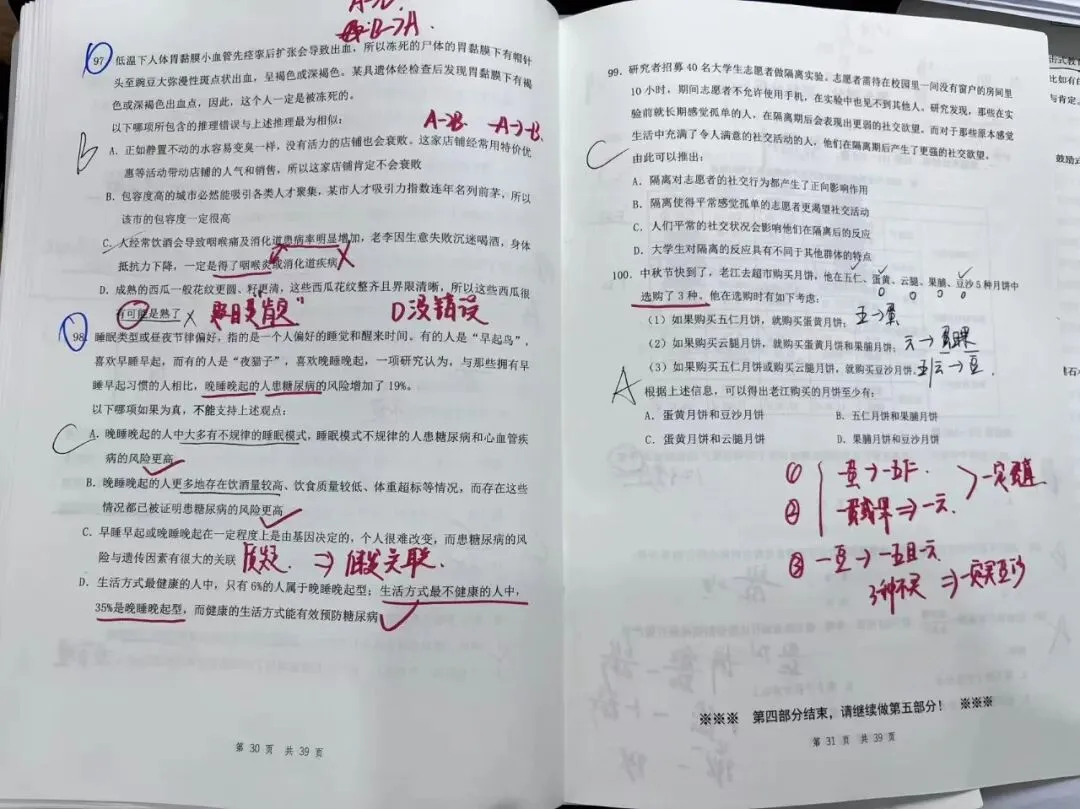 97. 低温下人体胃黏膜小血管先痉挛后扩张会导致出血，所以冻死的尸体的胃黏膜下有帽针
头至豌豆大弥漫性斑点状出血，呈褐色或深褐色。某具遗体经检查后发现胃黏膜下有褐
色或深褐色出血点，因此，这个人一定是被冻死的。
以下哪项所包含的推理错误与上述推理最为相似：
A→B. -A→-B.
B
A. 正如静置不动的水容易变臭一样，没有活力的店铺也会衰败。这家店铺经常用特价优
惠等活动带动店铺的人气和销售，所以这家店铺肯定不会衰败
B. 包容度高的城市必然能吸引各类人才聚集，某市人才吸引力指数连年名列前茅，所以
该市的包容度一定很高
C. 人经常饮酒会导致咽喉痛及消化道患病率明显增加，老李因生意失败沉迷喝酒，身体
抵抗力下降，一定是得了咽喉炎或消化道疾病
D. 成熟的西瓜一般花纹更圆、籽更少，这些西瓜花纹整齐且界限清晰，所以这些西瓜很
有可能是熟了
D没错误
98. 睡眠类型或昼夜节律偏好，指的是一个人偏好的睡觉和醒来时间。有的人是“早起鸟”，
喜欢早睡早起，而有的人是“夜猫子”，喜欢晚睡晚起，一项研究认为，与那些拥有早
睡早起习惯的人相比，晚睡晚起的人患糖尿病的风险增加了 19%。
以下哪项如果为真，不能支持上述观点：
C
A. 晚睡晚起的人中大多有不规律的睡眠模式，睡眠模式不规律的人患糖尿病和心血管疾
病的风险更高
B. 晚睡晚起的人更多地存在饮酒量较高、饮食质量较低、体重超标等情况，而存在这些
情况都已被证明患糖尿病的风险更高
C. 早睡早起或晚睡晚起在一定程度上是由基因决定的，个人很难改变，而患糖尿病的风
险与遗传因素有很大的关联
D. 生活方式最健康的人中，只有 6%的人属于晚睡晚起型；生活方式最不健康的人中，
35%是晚睡晚起型，而健康的生活方式能有效预防糖尿病
第 30 页 共 39 页
99. 研究者招募 40 名大学生志愿者做隔离实验。志愿者需待在校园里一间没有窗户的房间里
10 小时，期间志愿者不允许使用手机，在实验中也见不到其他人。研究发现，那些在实
验前就长期感觉孤单的人，在隔离期后会表现出更弱的社交欲望。而对于那些原本感觉
生活中充满了令人满意的社交活动的人，他们在隔离期后产生了更强的社交欲望。
由此可以推出：
C
A. 隔离对志愿者的社交行为都产生了正向影响作用
B. 隔离使得平常感觉孤单的志愿者更渴望社交活动
C. 人们平常的社交状况会影响他们在隔离后的反应
D. 大学生对隔离的反应具有不同于其他群体的特点
100. 中秋节快到了，老江去超市购买月饼，他在五仁、蛋黄、云腿、果脯、豆沙 5 种月饼中
选购了 3 种，他在选购时有如下考虑：
（1）如果购买五仁月饼，就购买蛋黄月饼；五→蛋
（2）如果购买云腿月饼，就购买蛋黄月饼和果脯月饼；云→蛋且果
（3）如果购买五仁月饼或购买云腿月饼，就购买豆沙月饼。五/云→豆.
A
根据上述信息，可以得出老江购买的月饼至少有：
A. 蛋黄月饼和豆沙月饼 B. 五仁月饼和果脯月饼
C. 蛋黄月饼和云腿月饼 D. 果脯月饼和豆沙月饼
① -蛋→-五仁.
② -蛋或-果⇒-云.
③ -豆→-五且-云
※※※ 第四部分结束，请继续做第五部分！ ※※※
第 31 页 共 39 页